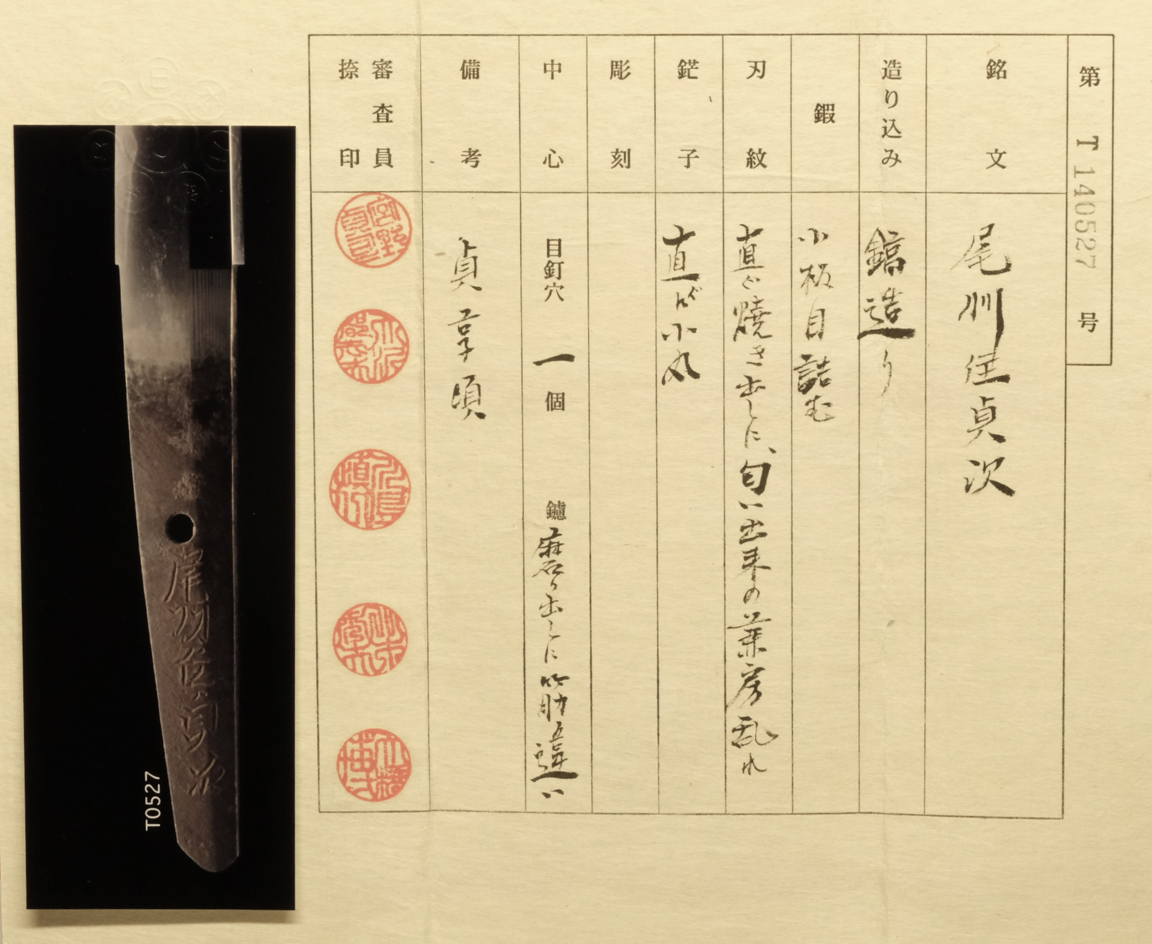 第 T 140527 号
銘文
尾州住貞次
造り込み
鎬造り
鍜
小板目詰む
刃紋
直ぐ焼き出しに、匂い出来の葉房乱れ
鋩子
直ぐ小丸
彫刻
中心
目釘穴 一 個 鑢 磨り出しに筋違い
備考
貞享頃
審査員
捺印
尾州住貞次
T0527